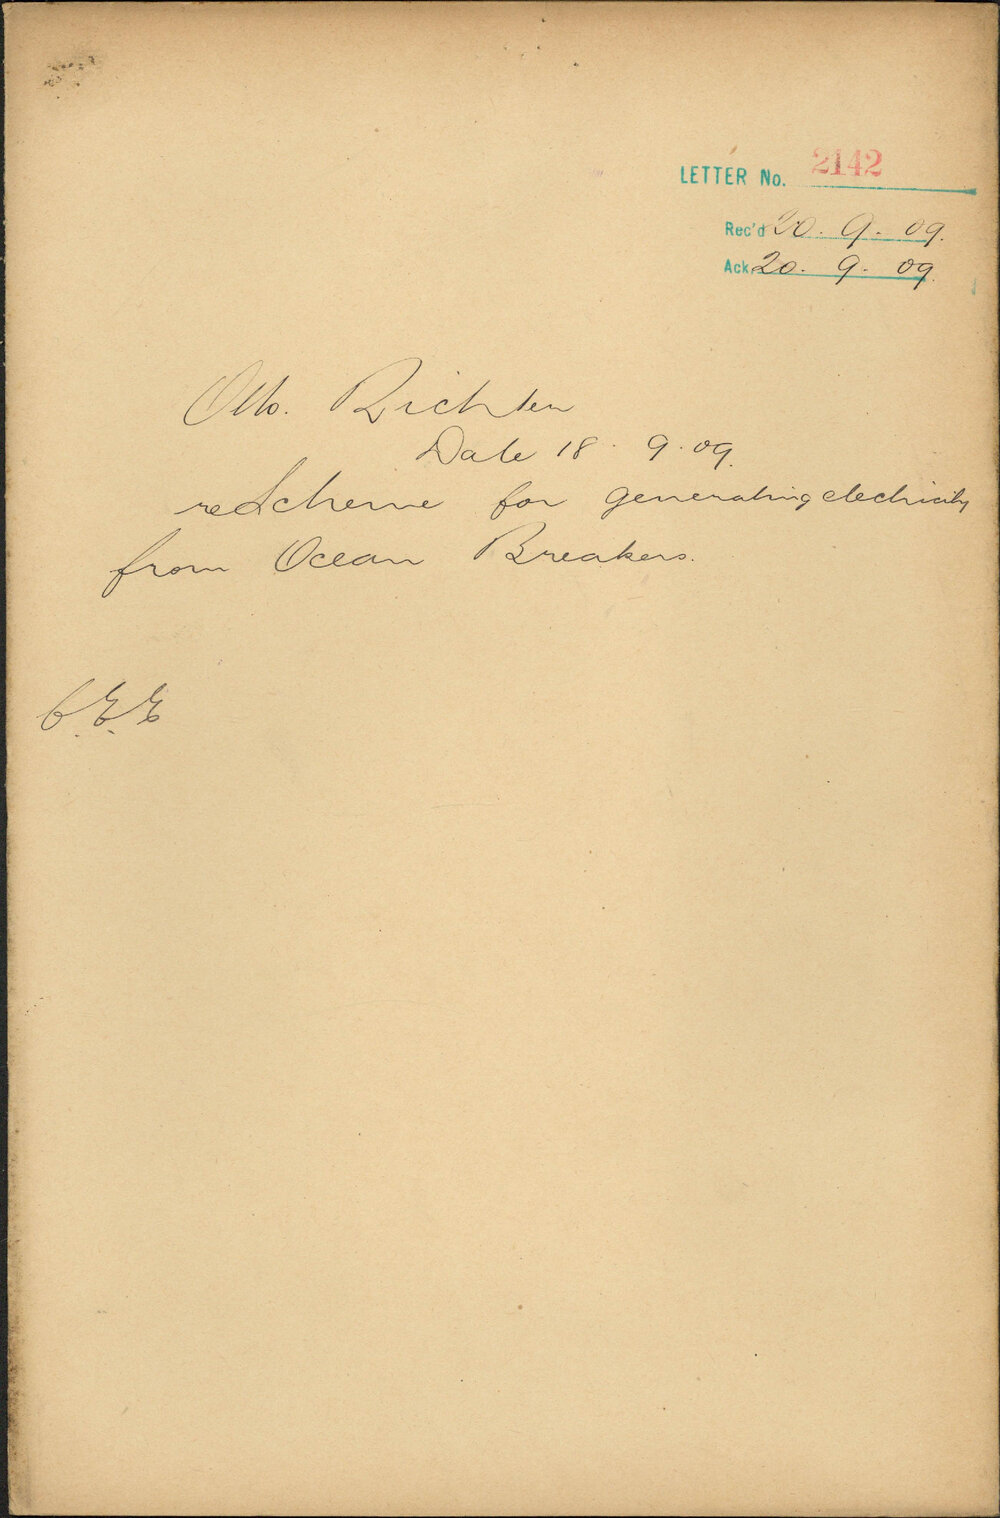 LETTER No. 2142
Rec'd 20. 9. 09.
Ack. 20. 9. 09.
Otto. Richter
Date 18. 9. 09.
re Scheme for generating electricity
from Ocean Breakers.
C.E.E